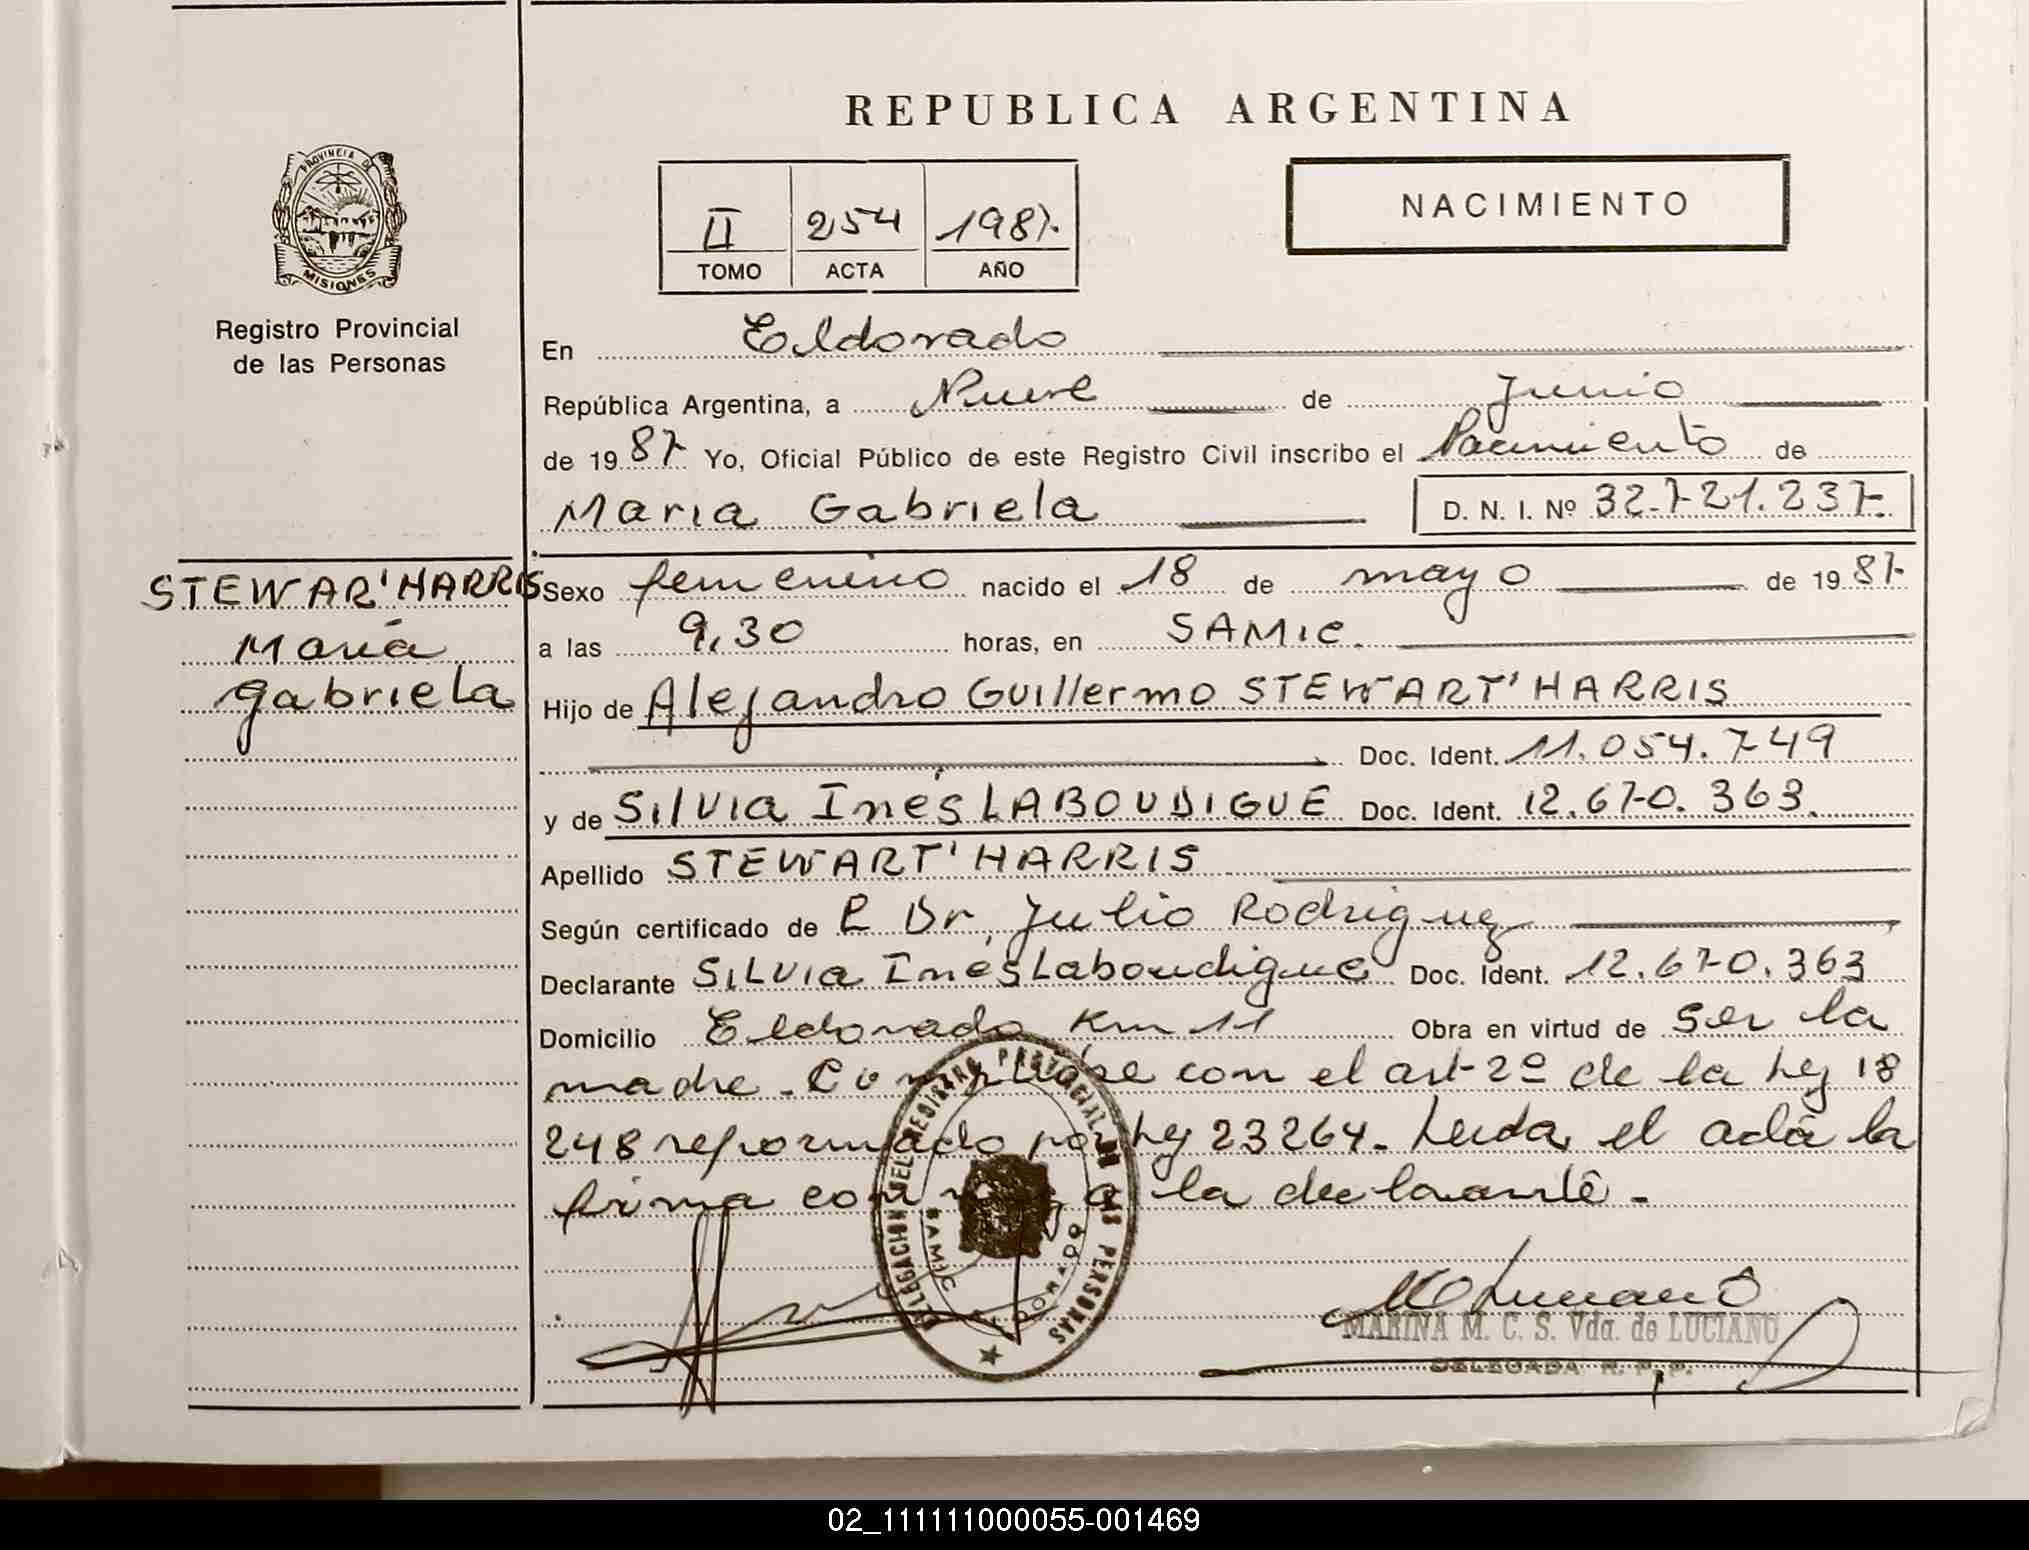 REPUBLICA ARGENTINA
PROVINCIA DE
MISIONES
Registro Provincial
de las Personas
II 254 1987.
TOMO ACTA AÑO
NACIMIENTO
En Eldorado
República Argentina, a Nueve de Junio
de 1987 Yo, Oficial Público de este Registro Civil inscribo el Nacimiento de
Maria Gabriela D. N. I. Nº 32.721.237.
STEWAR'HARRIS
Maria
Gabriela
Sexo femenino nacido el 18 de mayo de 1987
a las 9,30 horas, en SAMIC.
Hijo de Alejandro Guillermo STEWART'HARRIS
Doc. Ident. 11.054.749
y de Silvia Inés LABOUDIGUE Doc. Ident. 12.670.363.
Apellido STEWART'HARRIS
Según certificado de P Dr. Julio Rodriguez
Declarante Silvia Inés Laboudigue Doc. Ident. 12.670.363
Domicilio Eldorado Km 11 Obra en virtud de ser la
madre. Cumplióse con el art 2º de la Ley 18
248 reformado por Ley 23264. Leida el acta la
firma con la declarante.
DELEGACION DEL REGISTRO PROVINCIAL DE LAS PERSONAS
SAMIC ELDORADO
MARINA M. C. S. Vda. de LUCIANO
DELEGADA R. P. P.
02_111111000055-001469